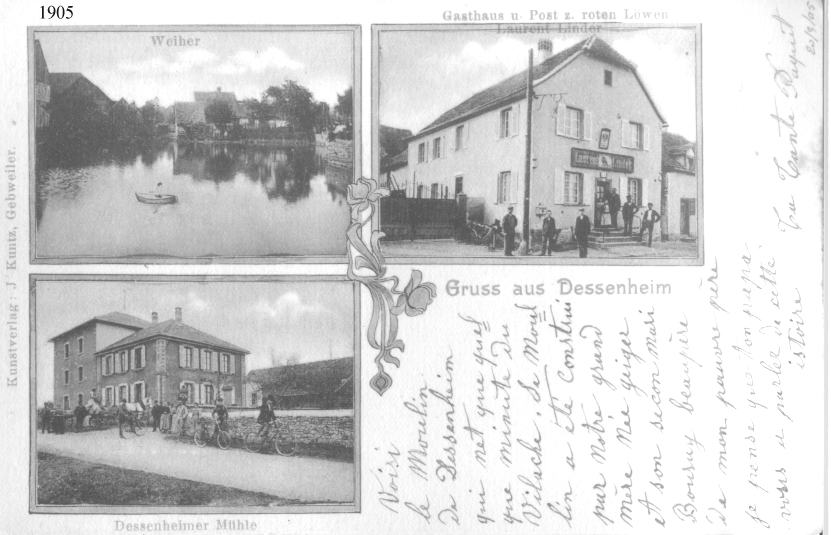 1905
Weiher
Gasthaus u. Post z. roten Löwen
Laurent Linder
Laurent Linder
Kunstverlag: J Kuntz, Gebweiler.
Gruss aus Dessenheim
Dessenheimer Mühle
Voisi
le Moulin
de Dessenheim
qui net que quel
que minute du
Vilache, Se Moul
lin a ete Construi
par notre grand
mère Née geiger
et son secon mari
Boursy beaupère
de mon pauvre père
je pense que ton papa
vous a parler de cette
istoire
Ta Tante